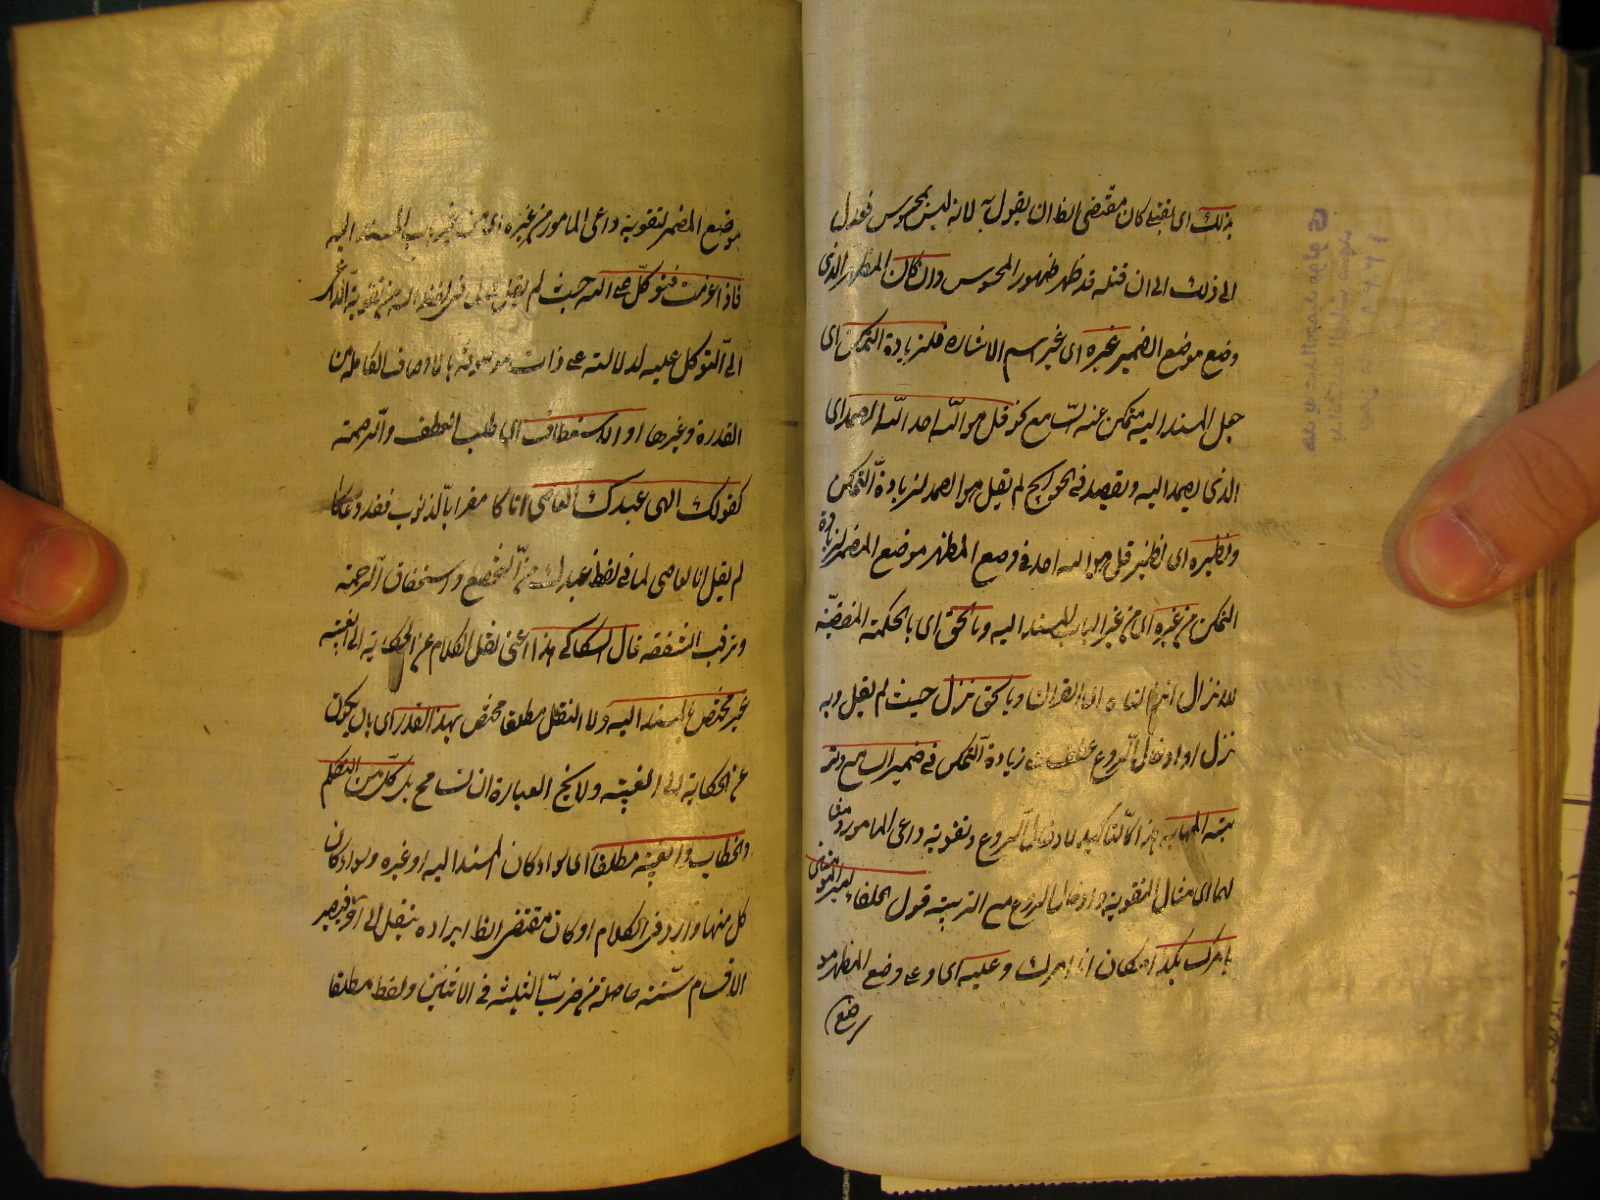 بذلك اى بقتله كان مقتضى الظ ان يقول به لانه ليس بمحسوس فعدل
الى ذلك الى ان قتله قد ظهر ظهور المحسوس وان كان المظهر الذى
وضع موضع الضمير غيره اى غير اسم الاشارة فلزيادة التمكن اى
جعل المسند اليه متمكن عند السامع نحو قل هو الله احد الله الصمد اى
الذى يصمد اليه ويقصد فى الحوايج لم يقل هو الصمد لزيادة التمكن
ونظيره اى نظير قل هو الله احد فى وضع المظهر موضع المضمر لزيادة
التمكن من غيره اى من غير باب المسند اليه وبالحق اى بالحكمة المقتضية
للانزال انزلناه اى القران وبالحق نزل حيث لم يقل وبه
نزل او ادخال الروع عطف على زيادة التمكن فى ضمير السامع وتر
بية المهابة هذا كالتاكيد لادخال الروع وتقوية داعى المامور ومثا
لهما اى مثال التقوية وادخال الروع مع التربية قول الخلفاء امير المومنين
يامرك بكذا مكان انا امرك وعليه اى وعلى وضع المظهر مو
ضع
موضع المضمر لتقوية داعى المامور من غيره اى من غير باب المسند اليه
فاذا عزمت فتوكل على الله حيث لم يقل على لما فى لفظ الله من تقوية الداعى
الى التوكل عليه لدلالته على ذات موصوفة بالاوصاف الكاملة من
القدرة وغيرها او الاستعطاف اى طلب العطف والرحمة
كقولك الهى عبدك العاصى اتاكا مقرا بالذنوب وقد دعاكا
لم يقل انا العاصى لما فى لفظ عبدك من التخضع واستحقاق الرحمة
وترقب الشفقة قال السكاكى هذا اعنى نقل الكلام عن الحكاية الى الغيبة
غير مختص بالمسند اليه ولا النقل مطلقا مختص بهذا القدر اى بان يكون
عن الحكاية الى الغيبة ولا يخ العبارة ان تسامح بل كل من التكلم
والخطاب والغيبة مطلقا اى سواء كان المسند اليه او غيره وسواء كان
كل منها وارد فى الكلام او كان مقتضى الظ ايراده ينقل الى آخر فيصير
الاقسام ستة حاصلة من ضرب الثلثة فى الاثنين ولفظ مطلقا